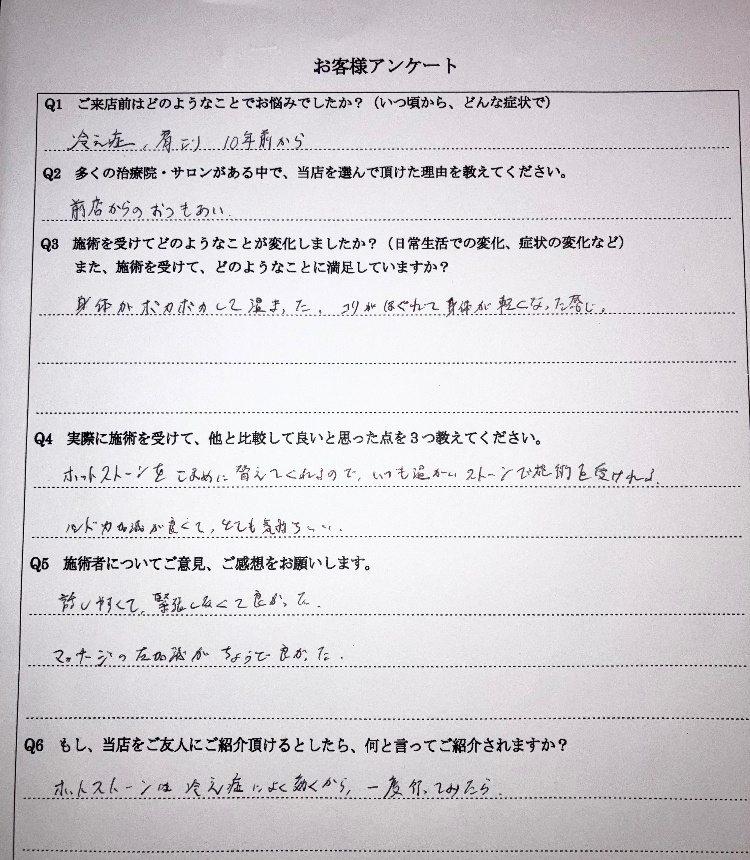 お客様アンケート
Q1 ご来店前はどのようなことでお悩みでしたか?(いつ頃から、どんな症状で)
冷え症、肩こり 10年前から
Q2 多くの治療院・サロンがある中で、当店を選んで頂けた理由を教えてください。
前店からのおつきあい.
Q3 施術を受けてどのようなことが変化しましたか?(日常生活での変化、症状の変化など)
また、施術を受けて、どのようなことに満足していますか?
身体がポカポカして温まった。コリがほぐれて身体が軽くなった感じ。
Q4 実際に施術を受けて、他と比較して良いと思った点を3つ教えてください。
ホットストーンをこまめに替えてくれるので、いつも温かいストーンで施術を受けれる.
力加減が良くて、とても気持ちいい.
Q5 施術者についてご意見、ご感想をお願いします。
話しやすくて、緊張しなくて良かった.
マッサージの力加減がちょうど良かった.
Q6 もし、当店をご友人にご紹介頂けるとしたら、何と言ってご紹介されますか?
ホットストーンは冷え症によく効くから、一度行ってみたら.